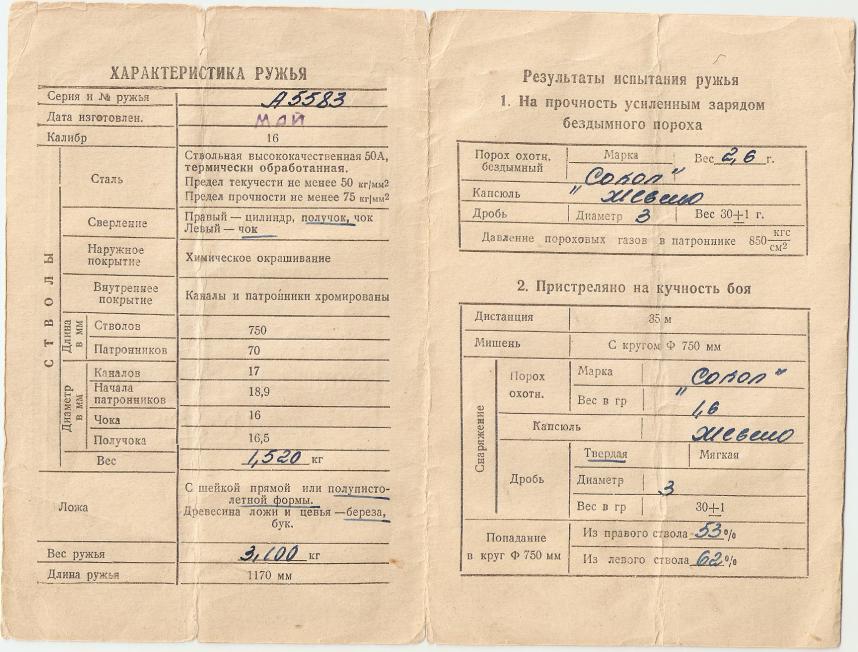 ХАРАКТЕРИСТИКА РУЖЬЯ
Серия и № ружья А5583
Дата изготовлен. МАЙ
Калибр 16
СТВОЛЫ
Сталь
Ствольная высококачественная 50А,
термически обработанная.
Предел текучести не менее 50 кг/мм²
Предел прочности не менее 75 кг/мм²
Сверление
Правый — цилиндр, получок, чок
Левый — чок
Наружное
покрытие
Химическое окрашивание
Внутреннее
покрытие
Каналы и патронники хромированы
Длина
в мм
Стволов 750
Патронников 70
Диаметр
в мм
Каналов 17
Начала
патронников 18,9
Чока 16
Получока 16,5
Вес 1,520 кг
Ложа
С шейкой прямой или полуписто-
летной формы.
Древесина ложи и цевья — береза,
бук.
Вес ружья 3,100 кг
Длина ружья 1170 мм
Результаты испытания ружья
1. На прочность усиленным зарядом
бездымного пороха
Порох охотн.
бездымный
Марка Вес 2,6 г.
"Сокол"
Капсюль Жевело
Дробь Диаметр 3 Вес 30±1 г.
Давление пороховых газов в патроннике 850 кгс/см²
2. Пристреляно на кучность боя
Дистанция 35 м
Мишень С кругом Ф 750 мм
Снаряжение
Порох
охотн.
Марка "Сокол"
Вес в гр 1,6
Капсюль Жевело
Дробь
Твердая Мягкая
Диаметр 3
Вес в гр 30±1
Попадание
в круг Ф 750 мм
Из правого ствола 53%
Из левого ствола 62%